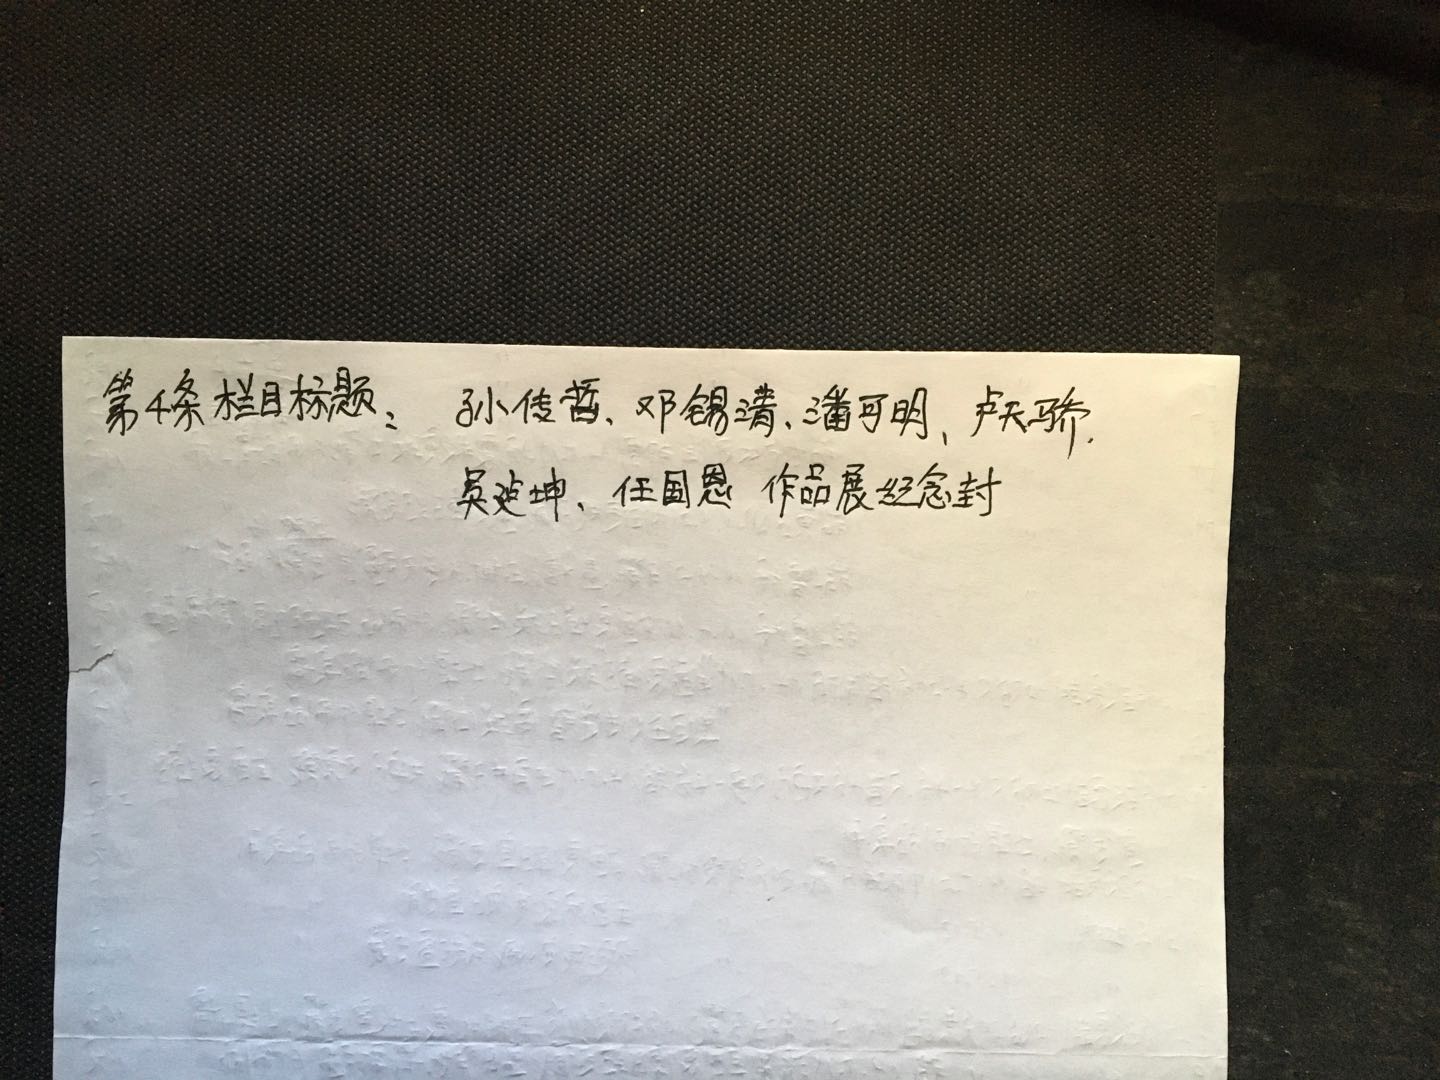 第4条栏目标题： 孙传哲、邓锡清、潘可明、卢天骄、
吴建坤、任国恩 作品展纪念封